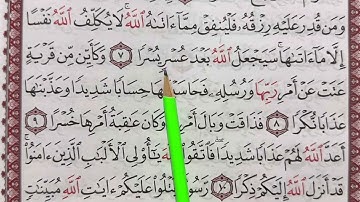 وَمَن قُدِرَ عَلَيْهِ رِزْقُهُۥ فَلْيُنفِقْ مِمَّآ ءَاتَىٰهُ ٱللَّهُ ۚ لَا يُكَلِّفُ ٱللَّهُ نَفْسًا
إِلَّا مَآ ءَاتَىٰهَا ۚ سَيَجْعَلُ ٱللَّهُ بَعْدَ عُسْرٍ يُسْرًا ٧ وَكَأَيِّن مِّن قَرْيَةٍ
عَتَتْ عَنْ أَمْرِ رَبِّهَا وَرُسُلِهِۦ فَحَاسَبْنَٰهَا حِسَابًا شَدِيدًا وَعَذَّبْنَٰهَا
عَذَابًا نُّكْرًا ٨ فَذَاقَتْ وَبَالَ أَمْرِهَا وَكَانَ عَٰقِبَةُ أَمْرِهَا خُسْرًا ٩
أَعَدَّ ٱللَّهُ لَهُمْ عَذَابًا شَدِيدًا ۖ فَٱتَّقُوا۟ ٱللَّهَ يَٰٓأُو۟لِى ٱلْأَلْبَٰبِ ٱلَّذِينَ ءَامَنُوا۟ ۚ
قَدْ أَنزَلَ ٱللَّهُ إِلَيْكُمْ ذِكْرًا ١٠ رَّسُولًا يَتْلُوا۟ عَلَيْكُمْ ءَايَٰتِ ٱللَّهِ مُبَيِّنَٰتٍ